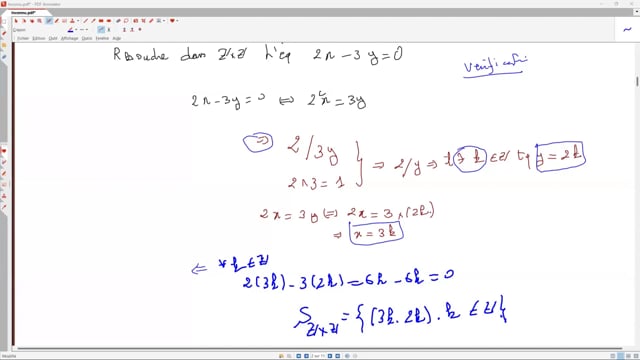 Résoudre dans ℤ×ℤ l'éq 2x − 3y = 0
Vérificati
2x − 3y = 0 ⟺ 2x = 3y
⇒) 2/3y
2∧3 = 1 } ⇒ 2/y ⇒ ∃ k ∈ ℤ tq y = 2k
2x = 3y ⟺ 2x = 3×(2k)
⇒ x = 3k
⇐ * k ∈ ℤ
2(3k) − 3(2k) = 6k − 6k = 0
S ℤ×ℤ = {(3k, 2k), k ∈ ℤ}